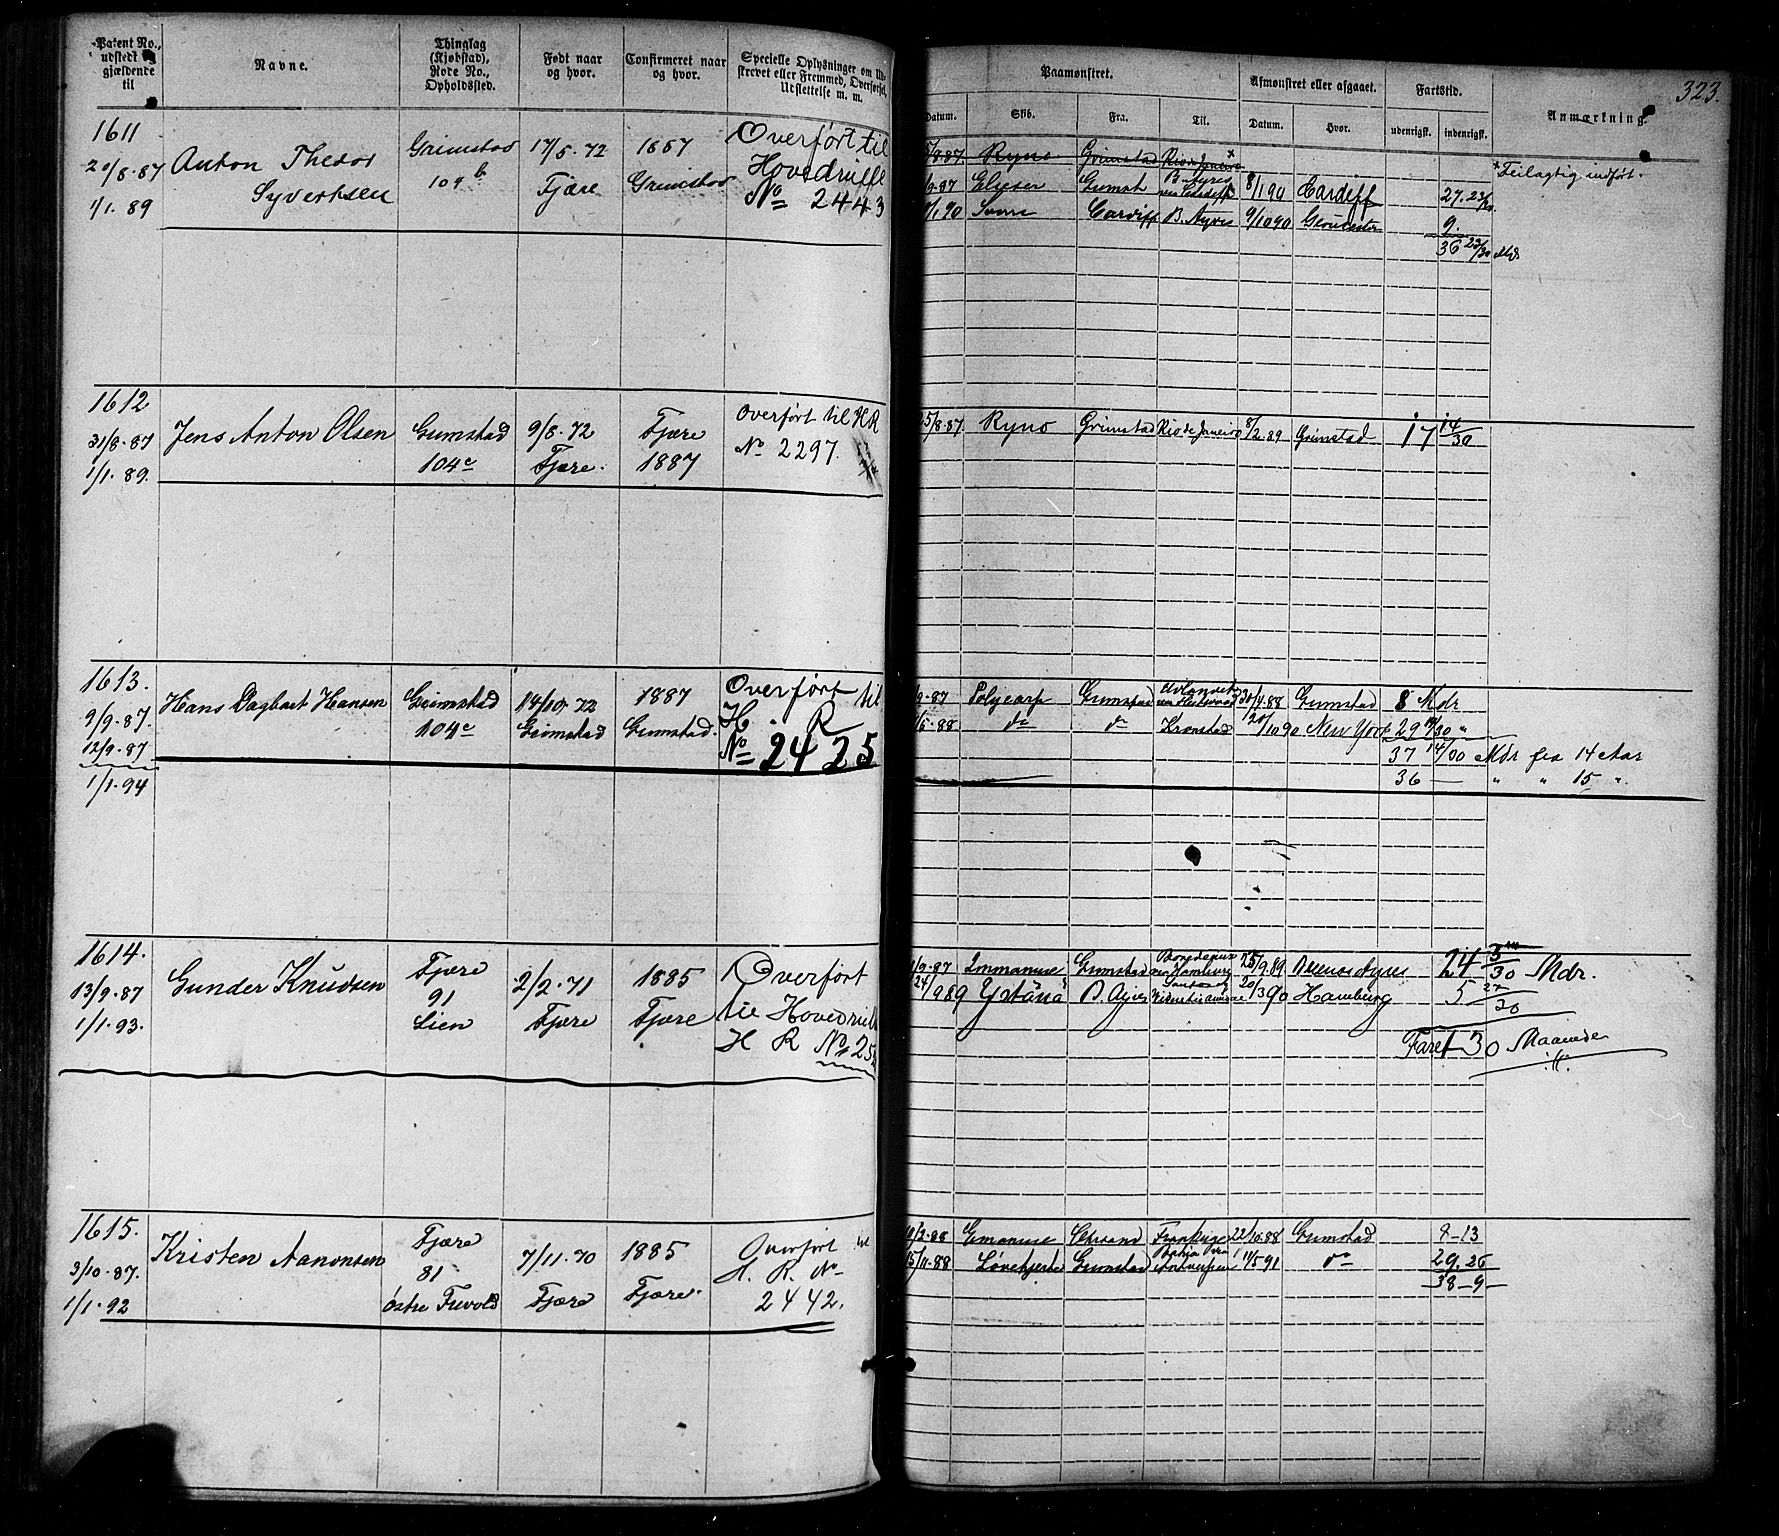 323.
Patent No., udstedt og gjældende til
Navne.
Thinglag (Kjøbsted), Rode No., Opholdssted.
Født naar og hvor.
Confirmeret naar og hvor.
Specielle Oplysninger om Udskrevet eller Fremmed, Overførsel, Udslettelse m. m.
Paamønstret.
Datum. Skib. Fra. Til.
Afmønstret eller afgaaet.
Datum. Hvor.
Fartstid.
udenrigsk. indenrigsk.
Anmærkning.
1611
20/8.87
1/1.89
Anton Thedor
Syvertsen
Grimstad
109 b
17/5.72
Fjære
1887
Grimstad
Overført til
Hovedrulle
No 2443
5/8.87. Ryno Grimstad Rio de Janeiro x
x Feilagtig indført.
/9.87 Elieser Grimst B. Ayres 8/1 90 Cardiff 27. 23/30
/1.90 Cardiff B. Ayres 9/10 90 Gloucester 9.
36 23/30 Mdr
1612
31/8.87
1/1.89.
Jens Anton Olsen
Grimstad
104c
9/8.72
Fjære.
Fjære
1887
Overført til H R
No 2297.
25/8.87 Ryno Grimstad Rio de Janeiro 8/2.89 Grimstad 17 14/30
1613.
9/9.87.
12/9.87
1/1.94
Hans Dagbart Hansen
Grimstad
104c
14/10.72
Grimstad
1887
Grimstad.
Overført til
H. R
No 2425
/9.87 Polycarp Grimstad /4.88 Grimstad 8 Mdr
/5.88 do do Kronstad /10 90 New York 29 14/30 "
37 14/30 Mdr fra 14 Aar
36 — " " 15 "
1614.
13/9.87
1/1.93.
Gunder Knudsen
Fjære
91
Lien
2/2.71
Fjære
1885
Fjære
Overført
til Hovedrull
H R No 25
/9.87 Immanuel Grimstad 25/9.89 Buenos Ayres 24 3/30 Mdr.
24/9 89 B. Ayres 20/3 90 Hamburg 5 27/30
Faret 30 Maaneder
1615.
3/10.87.
1/1.92
Kristen Aanonsen
Fjære
81
østre Trevold
7/11.70
Fjære
1885
Fjære.
Overført til
H. R. No
2442.
/2.88 Emanuel Chrsand 22/10.88 Grimstad 8–13
15/11.88 Løvehjerte Grimstad Bahia via Antwerpen 11/5 91 do 29.26
38–9